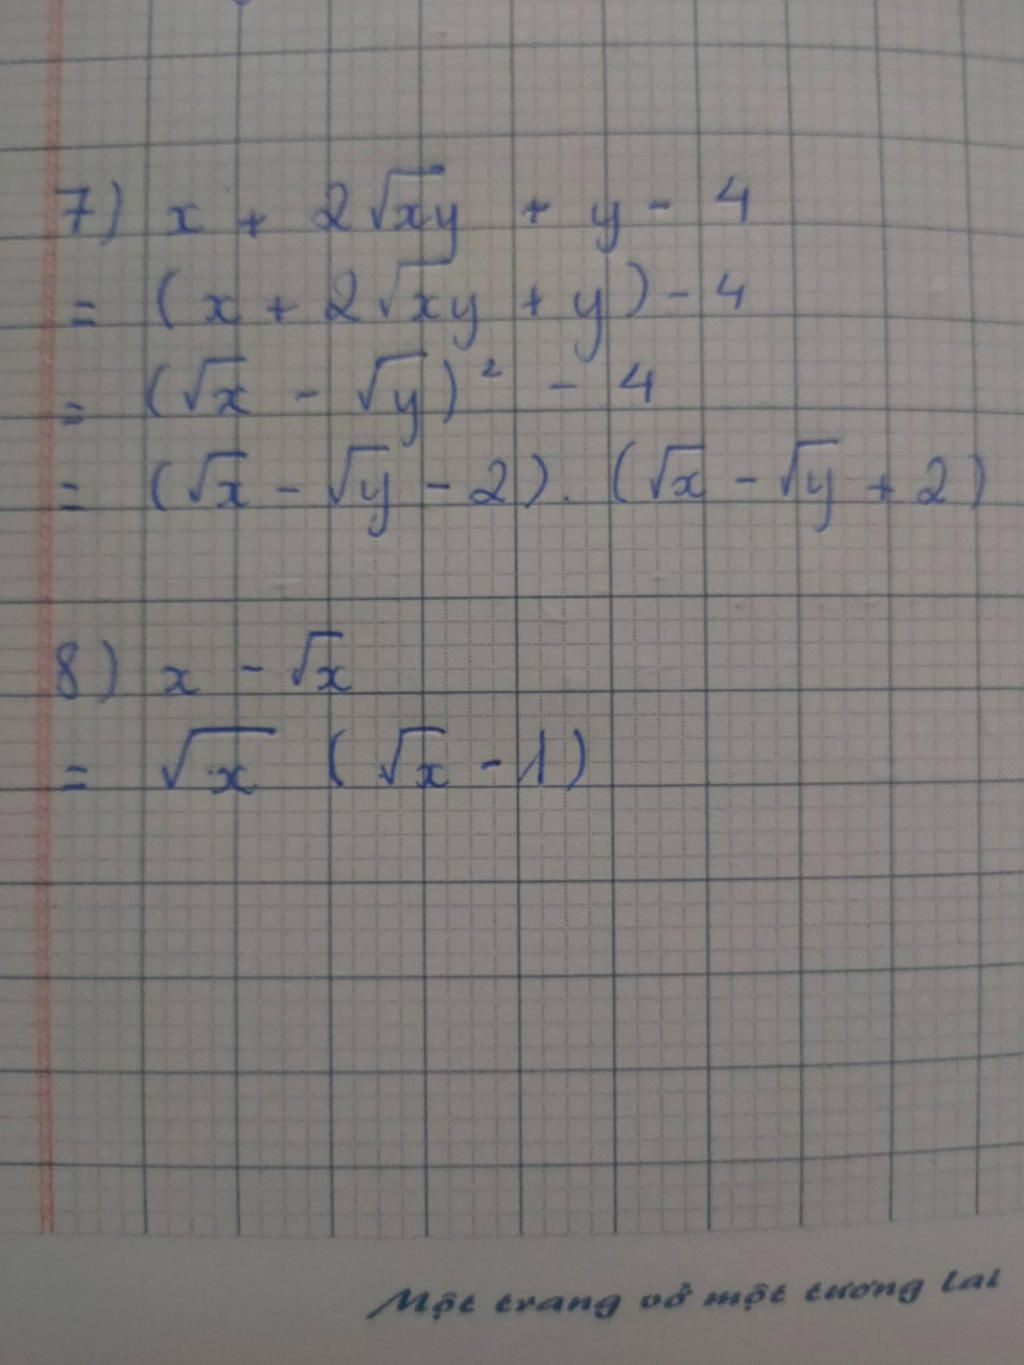 7) x + 2√xy + y - 4
= (x + 2√xy + y) - 4
= (√x - √y)² - 4
= (√x - √y - 2). (√x - √y + 2)
8) x - √x
= √x (√x - 1)
Một trang vở một tương lai